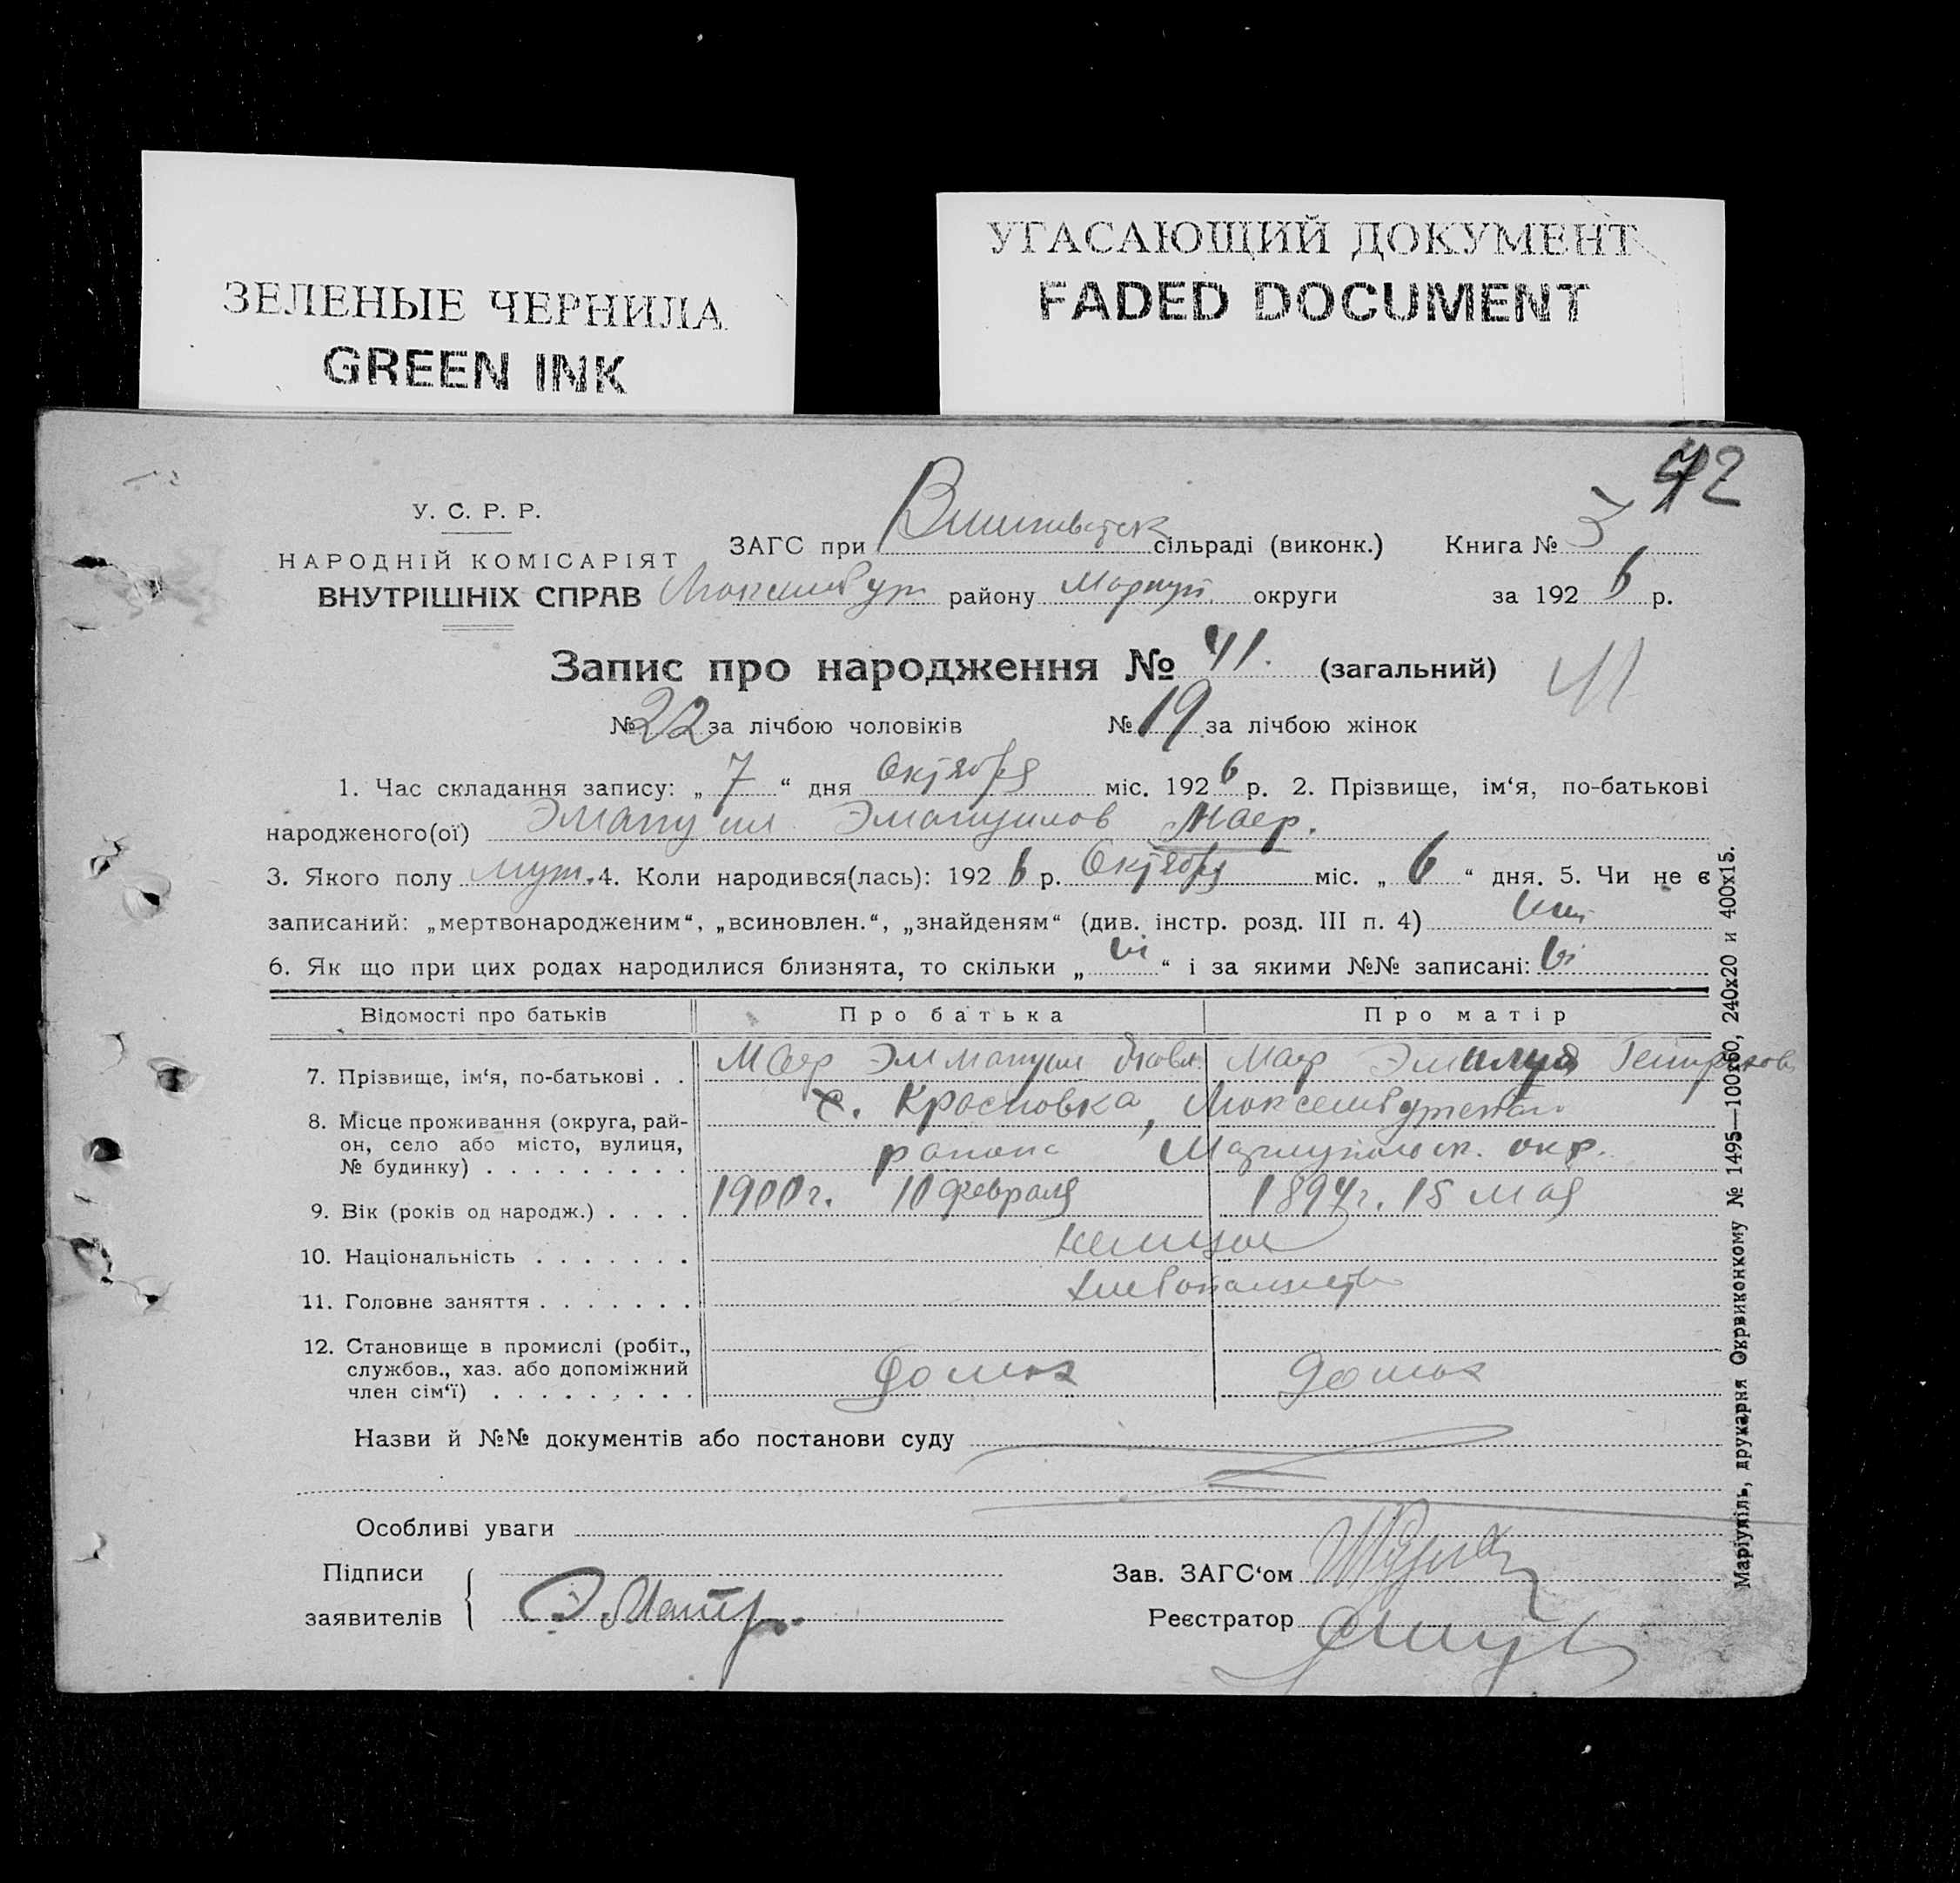 УГАСАЮЩИЙ ДОКУМЕНТ
FADED DOCUMENT
ЗЕЛЕНЫЕ ЧЕРНИЛА
GREEN INK
42
У. С. Р. Р.
НАРОДНІЙ КОМІСАРІЯТ
ВНУТРІШНІХ СПРАВ
ЗАГС при сільраді (виконк.) Книга №
району Мариуп. округи за 1926 р.
Запис про народження № 41. (загальний) 41
№ 22 за лічбою чоловіків № 19 за лічбою жінок
1. Час складання запису: „ 7 “ дня Октября міс. 1926 р. 2. Прізвище, ім‘я, по-батькові
народженого(ої) Эмануил Эмануилов Маер.
3. Якого полу муж. 4. Коли народився(лась): 1926 р. Октября міс. „ 6 “ дня. 5. Чи не є
записаний: „мертвонародженим“, „всиновлен.“, „знайденям“ (див. інстр. розд. III п. 4)
6. Як що при цих родах народилися близнята, то скільки „ “ і за якими №№ записані:
Відомості про батьків Про батька Про матір
7. Прізвище, ім‘я, по-батькові . . Маер Эммануил Яковл. Маер Эмилия
8. Місце проживання (округа, рай-
он, село або місто, вулиця,
№ будинку) . . . . . . . . .
с. Красновка, Люксембургского
района Мариупольск. окр.
9. Вік (років од народж.) . . . . 1900г. 10 февраля 1894г. 15 мая
10. Національність . . . . . . . немцы
11. Головне заняття . . . . . . . хлебопашество
12. Становище в промислі (робіт.,
службов., хаз. або допоміжний
член сім‘ї) . . . . . . . . .
домох домох
Назви й №№ документів або постанови суду
Особливі уваги
Підписи
заявителів Э. Маер.
Зав. ЗАГС‘ом
Реєстратор
Маріупіль, друкарня Окрвиконкому № 1495—100х60, 240х20 и 400х15.